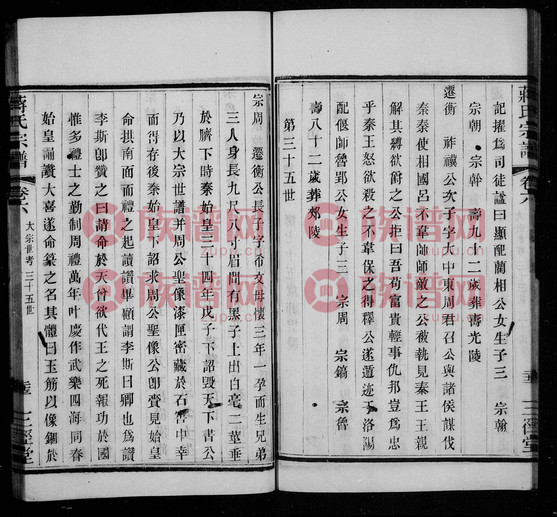 記擢爲司徒諡曰顯配藺相公女生子三 宗翰
宗朝 宗幹 壽九十二歲葬壽光陵
遷衡 祚禳公次子字大中東周君召公與諸侯謀伐
秦秦使相國呂不韋帥師敵之公被執見秦王王親
解其縛欲俯之公拒曰吾苟富貴輕事仇邦豈爲忠
乎秦王怒欲殺之不韋保之得釋公遂遁迹子洛陽
配偃師魯郢公女生子三 宗周 宗鎬 宗魯
壽八十二歲葬郟陵
第三十五世
宗周 遷衡公長子字希文母懷三年一孕而生兄弟
三人身長九尺八寸眉間有黑子上出白毫二莖垂
於臍下時秦始皇三十四年戊子下詔毀天下書公
乃以大宗世譜并周公聖像漆匣密藏於石窖中幸
而得存後秦始皇詔求周公聖像公卽賫見始皇
命拱南面而禮之起讀讀畢顧謂李斯曰卿也爲讀
李斯卽贊之曰請命於天曾欲代王之死報功於晨
惟多禮士之勤制周禮萬年叶慶作武樂四海同春
始皇誦讚大喜遂命篆之名其體曰玉筯以像鎸於
蔣氏宗譜
卷六
大宗世考 三十五世
三徑堂
蔣氏宗譜
卷六
三徑堂
族譜网